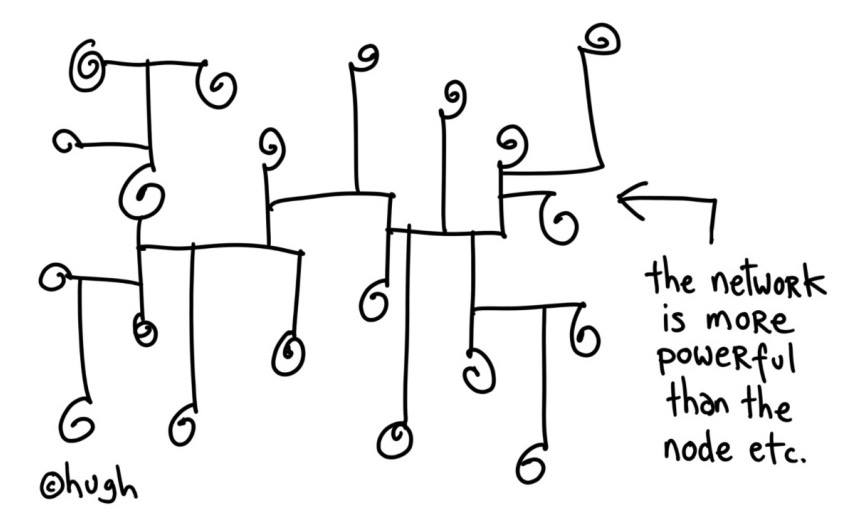 the network
is more
powerful
than the
node etc.
©hugh